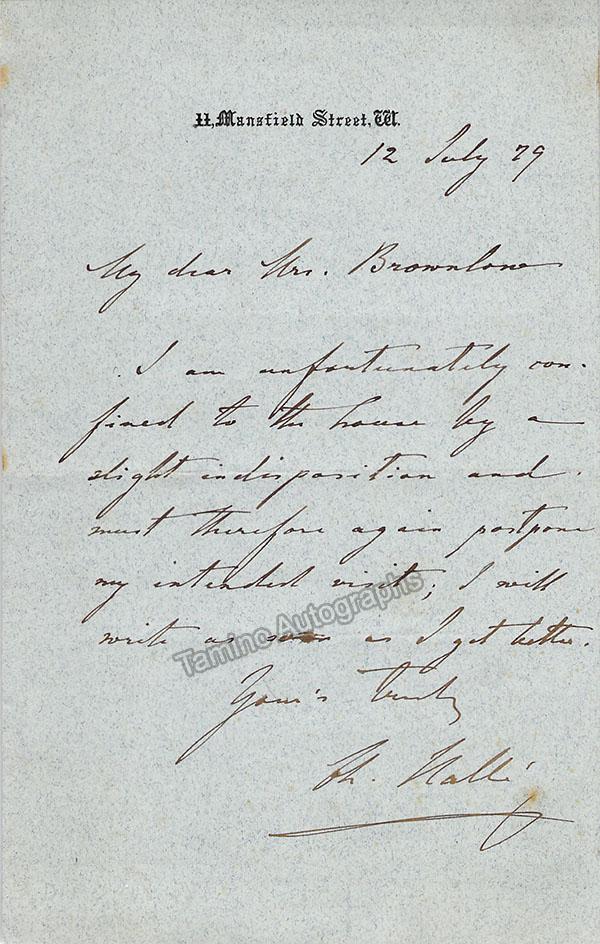 11, Mansfield Street, W.
12 July 79
My dear Mrs. Brownlow
I am unfortunately con-
fined to the house by a
slight indisposition and
must therefore again postpone
my intended visit; I will
write as soon as I get better.
Your's truly
Ch. Hallé
Tamino Autographs